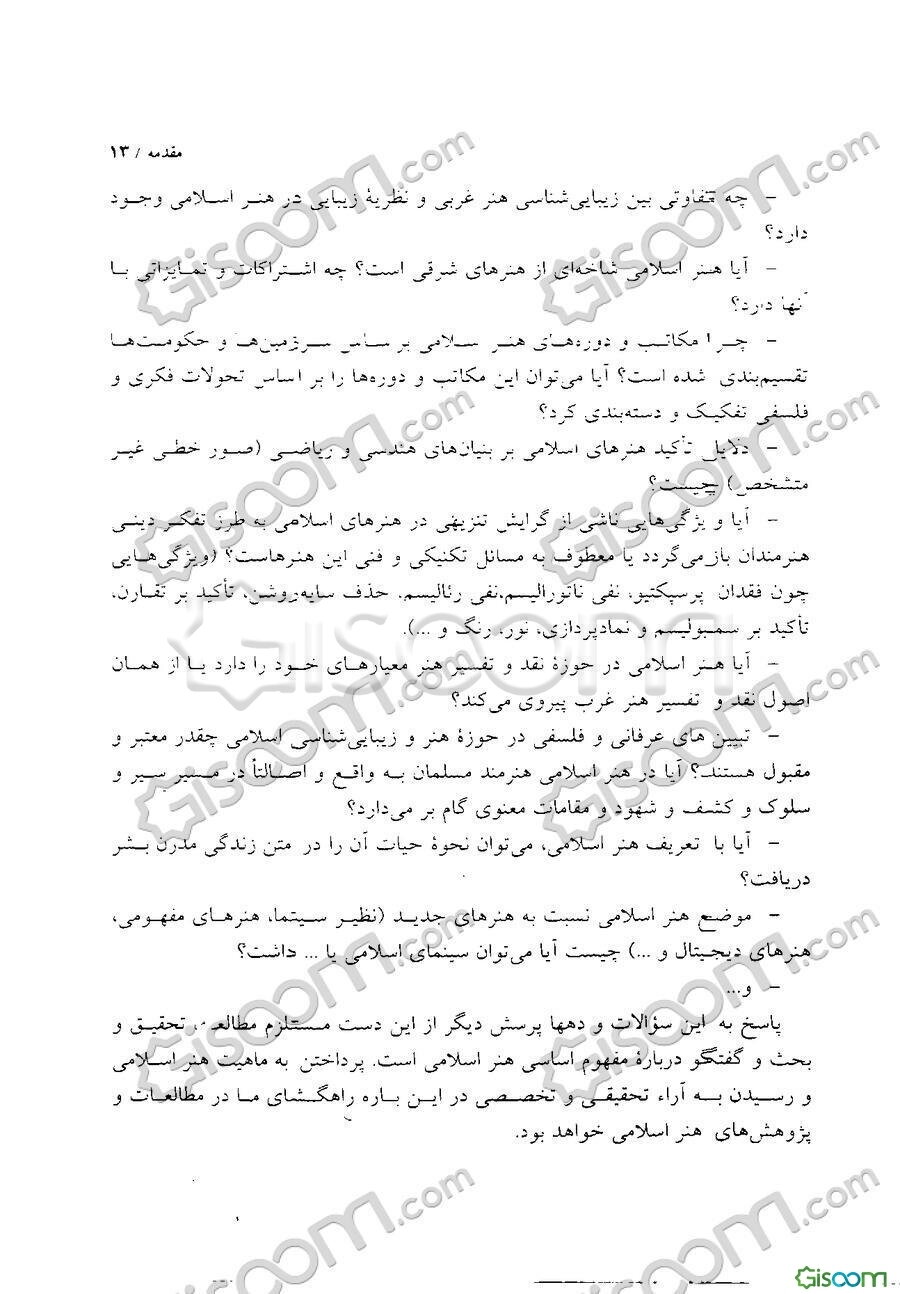 مقدمه / ۱۳
- چه تفاوتی بین زیبایی‌شناسی هنر غربی و نظریهٔ زیبایی در هنر اسلامی وجود
دارد؟
- آیا هنر اسلامی شاخه‌ای از هنرهای شرقی است؟ چه اشتراکات و تمایزاتی با
آنها دارد؟
- چرا مکاتب و دوره‌های هنر سلامی بر ساس سرزمین‌ها و حکومت‌ها
تقسیم‌بندی شده است؟ آیا می‌توان این مکاتب و دوره‌ها را بر اساس تحولات فکری و
فلسفی تفکیک و دسته‌بندی کرد؟
- دلایل تأکید هنرهای اسلامی بر بنیان‌های هندسی و ریاضی (صور خطی غیر
متشخص) چیست؟
- آیا ویژگی‌هایی ناشی از گرایش تنزیهی در هنرهای اسلامی به طرز تفکر دینی
هنرمندان بازمی‌گردد یا معطوف به مسائل تکنیکی و فنی این هنرهاست؟ (ویژگی‌هایی
چون فقدان پرسپکتیو، نفی ناتورالیسم،نفی رئالیسم، حذف سایه‌روشن، تأکید بر تقارن،
تأکید بر سمبولیسم و نمادپردازی، نور، رنگ و ...).
- آیا هنر اسلامی در حوزهٔ نقد و تفسیر هنر معیارهای خود را دارد یا از همان
اصول نقد و تفسیر هنر غرب پیروی می‌کند؟
- تبیین های عرفانی و فلسفی در حوزهٔ هنر و زیبایی‌شناسی اسلامی چقدر معتبر و
مقبول هستند؟ آیا در هنر اسلامی هنرمند مسلمان به واقع و اصالتاً در مسیر سیر و
سلوک و کشف و شهود و مقامات معنوی گام بر می‌دارد؟
- آیا با تعریف هنر اسلامی، می‌توان نحوهٔ حیات آن را در متن زندگی مدرن بشر
دریافت؟
- موضع هنر اسلامی نسبت به هنرهای جدید (نظیر سینما، هنرهای مفهومی،
هنرهای دیجیتال و ...) چیست آیا می‌توان سینمای اسلامی یا ... داشت؟
- و...
پاسخ به این سؤالات و دهها پرسش دیگر از این دست مستلزم مطالعه، تحقیق و
بحث و گفتگو دربارهٔ مفهوم اساسی هنر اسلامی است. پرداختن به ماهیت هنر اسلامی
و رسیدن به آراء تحقیقی و تخصصی در این باره راهگشای ما در مطالعات و
پژوهش‌های هنر اسلامی خواهد بود.
Gisoom